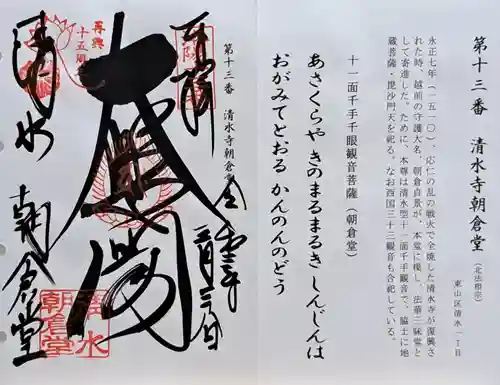 第十三番 清水寺朝倉堂
(北法相宗)
東山区清水一丁目
永正七年(一五一〇)応仁の乱の戦火で全焼した清水寺が復興さ
れた時、越前の守護大名、朝倉貞景が、本堂に模し、法華三昧堂と
して寄進した。ために、本尊は清水型十一面千手観音で、脇士に地
蔵菩薩・毘沙門天を祀る。なお西国三十三観音も合祀している。
十一面千手千眼観音菩薩(朝倉堂)
あさくらや きのまるまるき しんじんは
おがみてとおる かんのんのどう
第十三番 清水寺朝倉
奉拝
再興
十五周
清水
朝倉堂
清水
朝倉堂